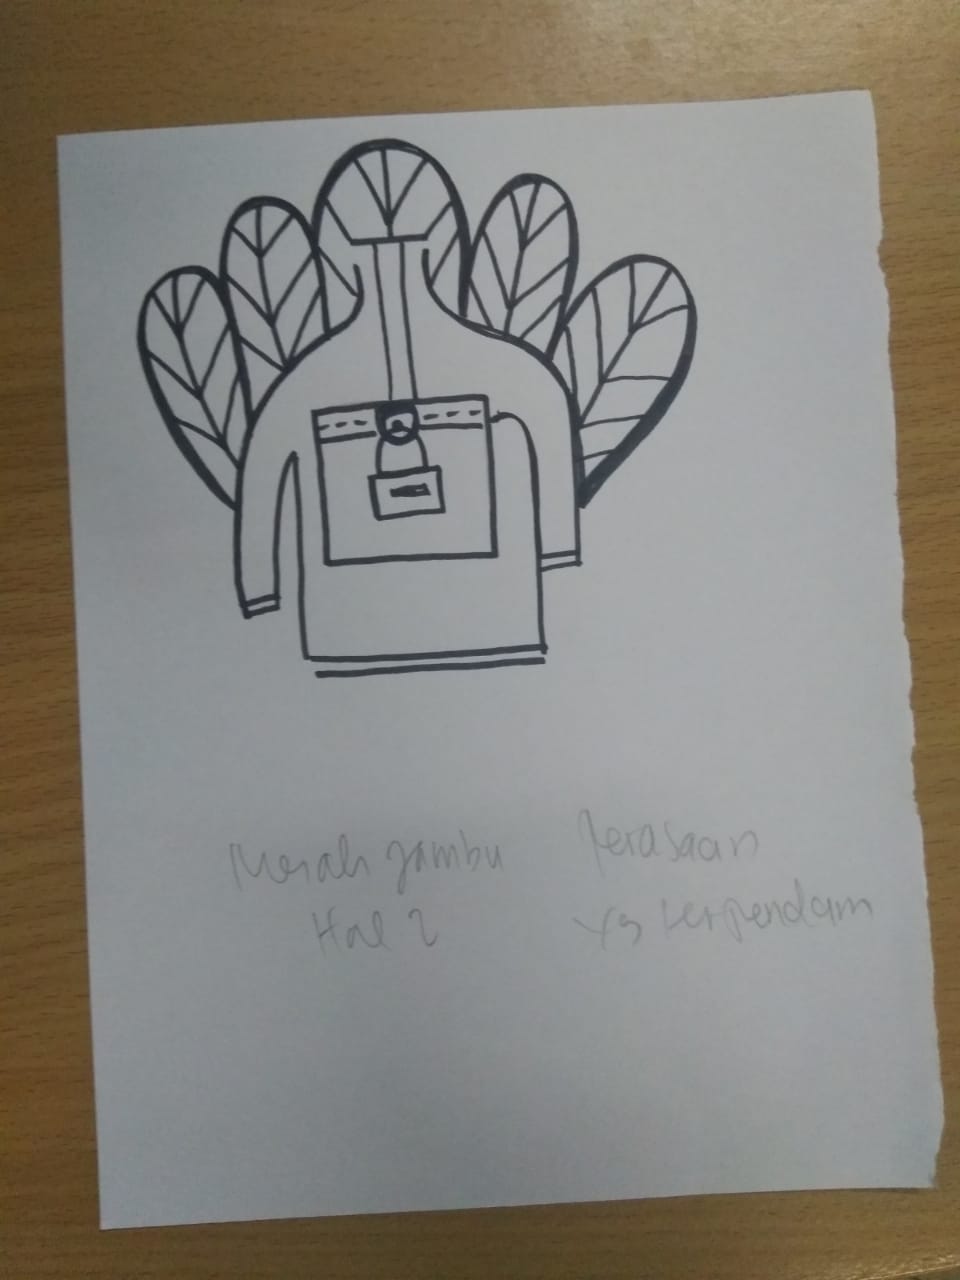 Merah jambu
Hal 2
Perasaan
yg terpendam